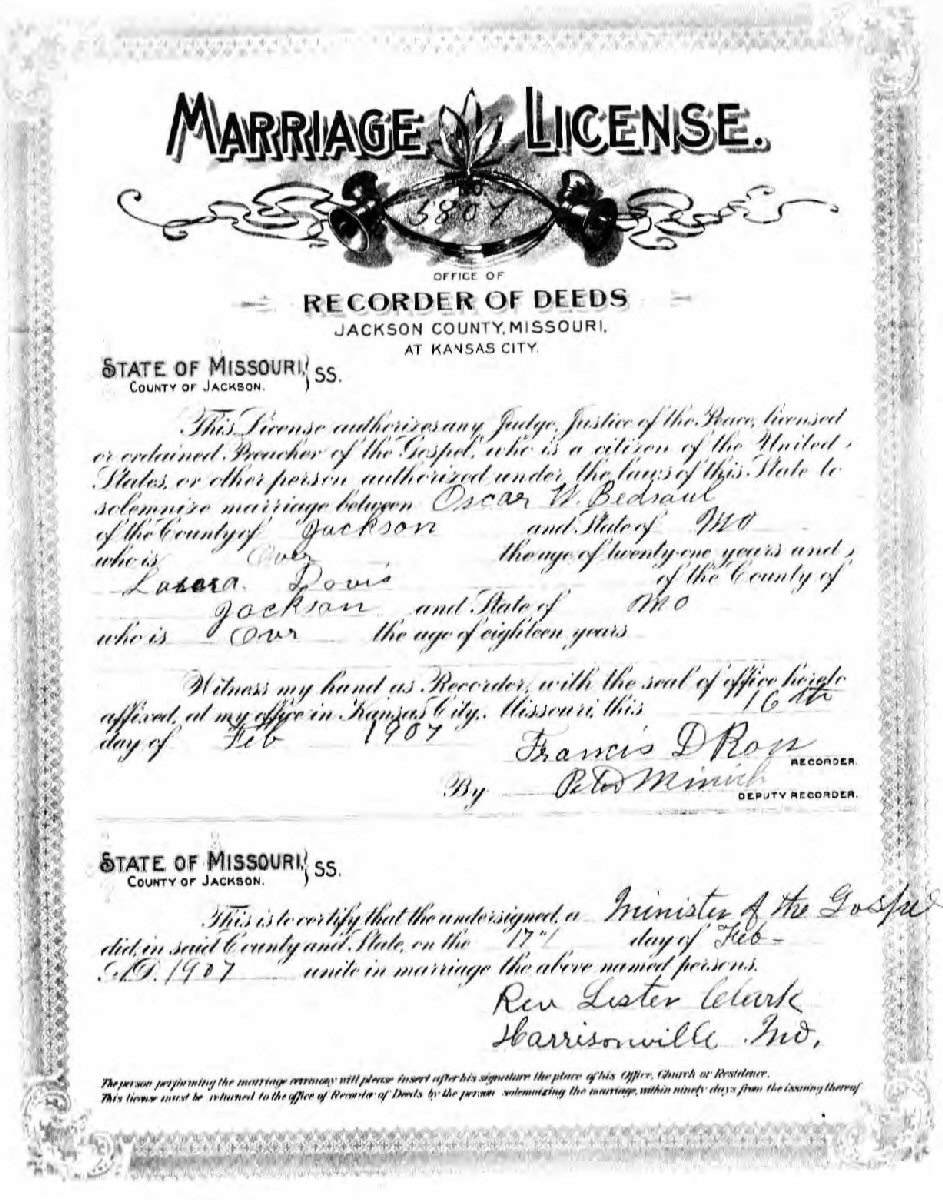 MARRIAGE LICENSE.
NO
5807
OFFICE OF
RECORDER OF DEEDS
JACKSON COUNTY, MISSOURI,
AT KANSAS CITY.
STATE OF MISSOURI, } SS.
COUNTY OF JACKSON.
This License authorizes any Judge, Justice of the Peace, licensed
or ordained Preacher of the Gospel, who is a citizen of the United
States, or other person authorized under the laws of this State to
solemnize marriage between Oscar W. Bedsaul
of the County of Jackson and State of Mo
who is Over the age of twenty-one years and
Davis of the County of
Jackson and State of Mo
who is Over the age of eighteen years
Witness my hand as Recorder, with the seal of office hereto
affixed, at my office in Kansas City, Missouri, this 16th
day of Feb 1907
Francis D Ross RECORDER.
By Minich DEPUTY RECORDER.
STATE OF MISSOURI, } SS.
COUNTY OF JACKSON.
This is to certify that the undersigned, a Minister of the Gospel
did, in said County and State, on the 17th day of Feb
A.D. 1907 unite in marriage the above named persons.
Rev Lester Clark
Harrisonville Mo.
The person performing the marriage ceremony will please insert after his signature the place of his Office, Church or Residence.
This license must be returned to the office of Recorder of Deeds by the person solemnizing the marriage, within ninety days from the issuing thereof